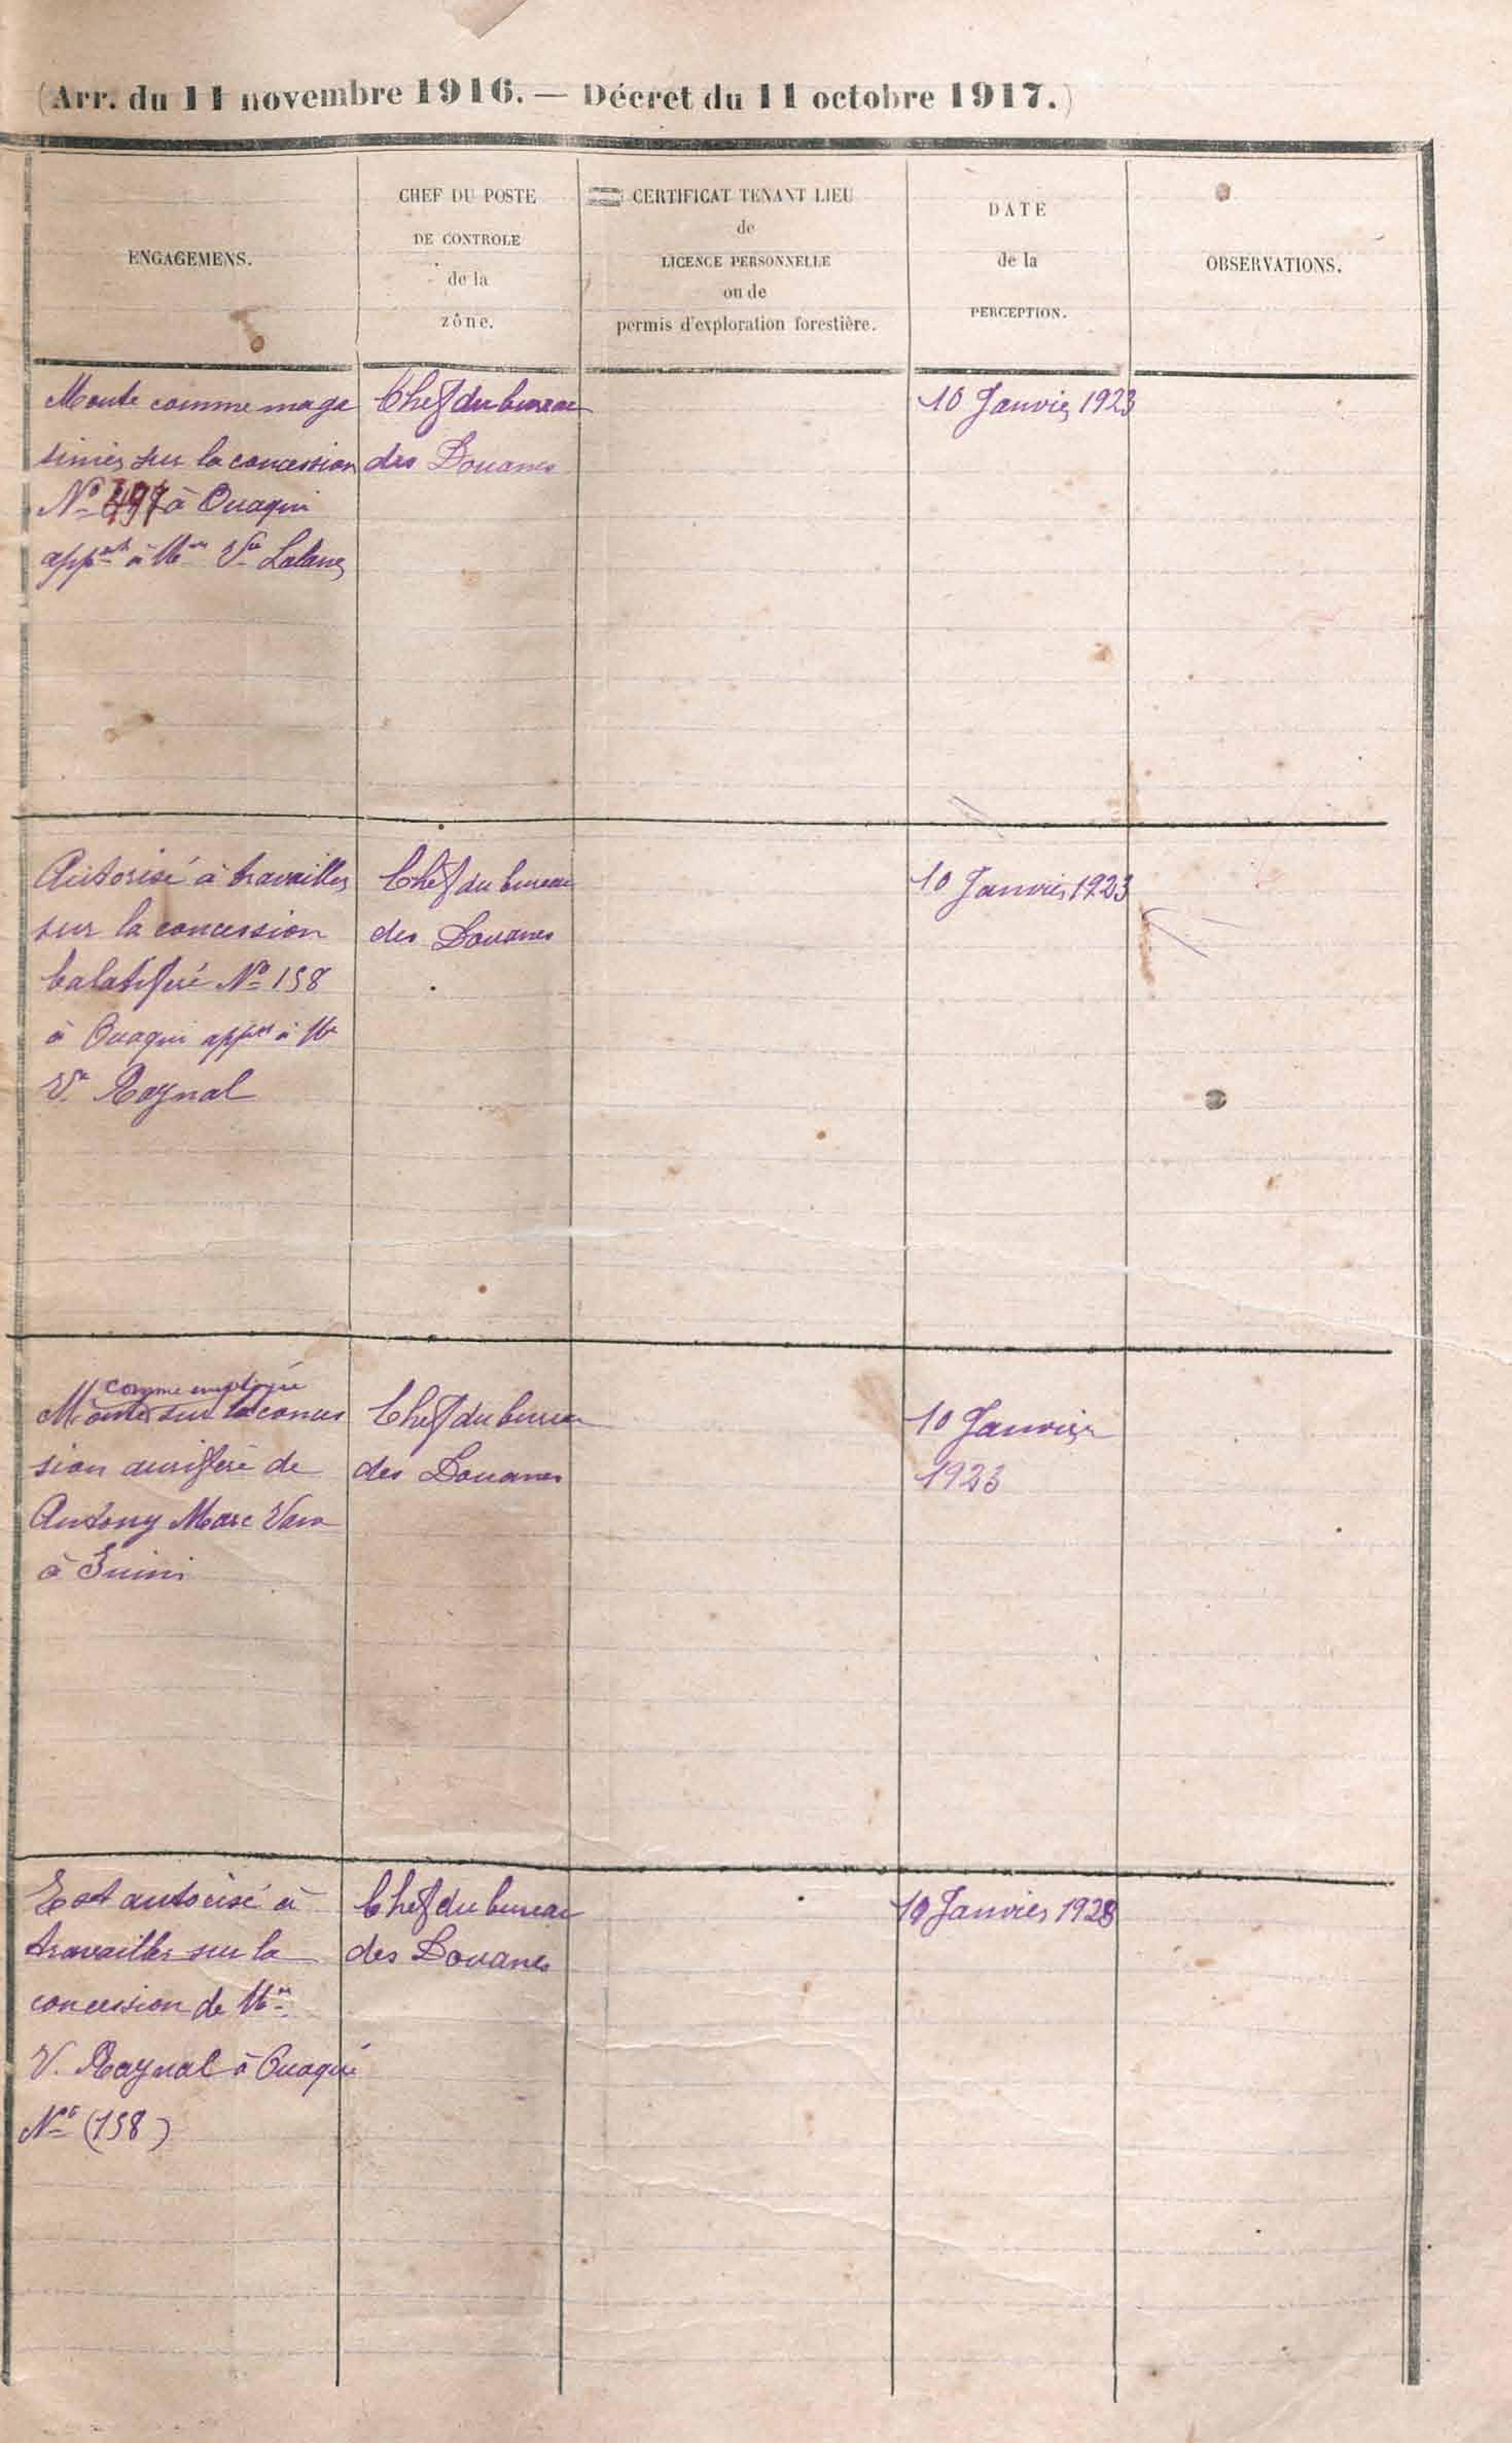 (Arr. du 11 novembre 1916. — Décret du 11 octobre 1917.)
ENGAGEMENS.
CHEF DU POSTE
DE CONTROLE
de la
zône.
CERTIFICAT TENANT LIEU
de
LICENCE PERSONNELLE
ou de
permis d'exploration forestière.
DATE
de la
PERCEPTION.
OBSERVATIONS.
Monte comme maga
sinier sur la concession
No à Ouaqui
appnt à Mme Vve
Chef du bureau
des Douanes
10 Janvier 1923
Autorisé à travailler
sur la concession
balatifère No 158
à Ouaqui appnt à Me
Ve Raynal
Chef du bureau
des Douanes
10 Janvier 1923
comme employé
Monte sur la conces
sion aurifère de
Antony Marc
à
Chef du bureau
des Douanes
10 Janvier
1923
Est autorisé à
travailler sur la
concession de Mme
V. Raynal à Ouaqui
No (158)
Chef du bureau
des Douanes
10 Janvier 1923